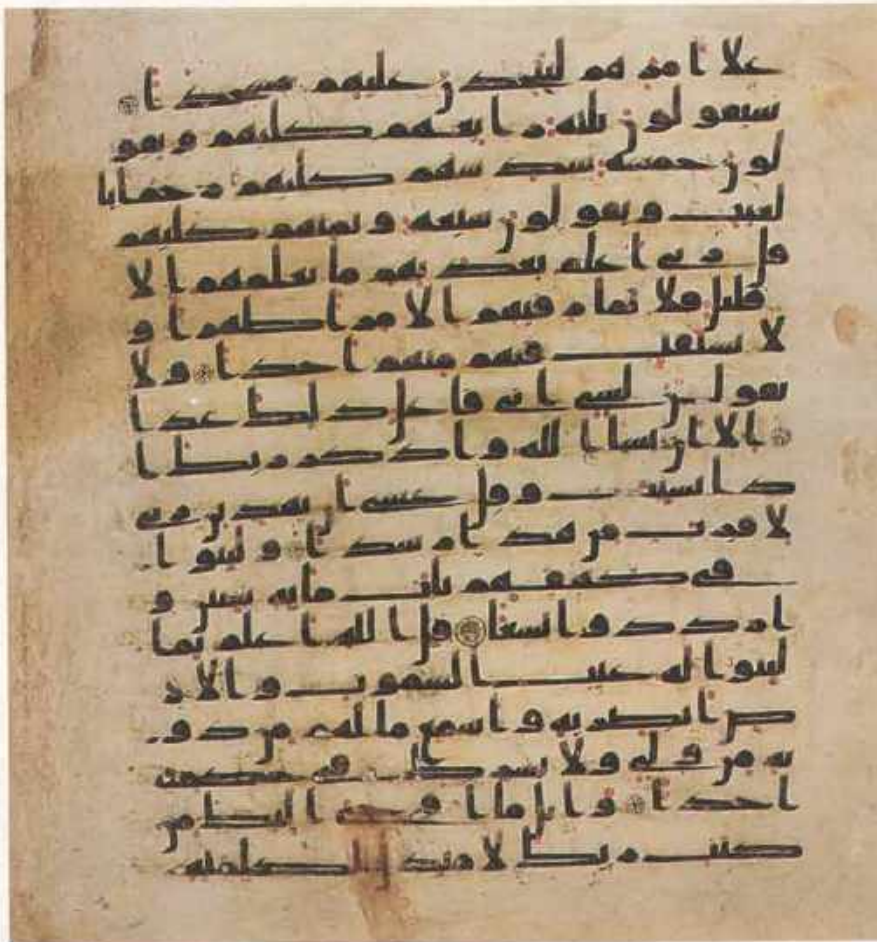 على امرهم لنتخذن عليهم مسجدا
سيقولون ثلثة رابعهم كلبهم ويقو
لون خمسة سدسهم كلبهم رجما با
لغيب ويقولون سبعة وثمنهم كلبهم
قل ربى اعلم بعدتهم ما يعلمهم الا
قليل فلا تمار فيهم الا مرا ظهرا و
لا تستفت فيهم منهم احدا ولا
تقولن لشى انى فاعل ذلك غدا
الا ان يشا الله واذكر ربك ا
ذا نسيت وقل عسى ان يهدين ربى
لاقرب من هذا رشدا ولبثوا
فى كهفهم ثلث مايه سنين و
ازددوا تسعا قل الله اعلم بما
لبثوا له غيب السموت والار
ض ابصر به واسمع ما لهم من دو
نه من ولى ولا يشرك فى حكمه
احدا واتل ما اوحى اليك من
كتب ربك لا مبدل لكلمته